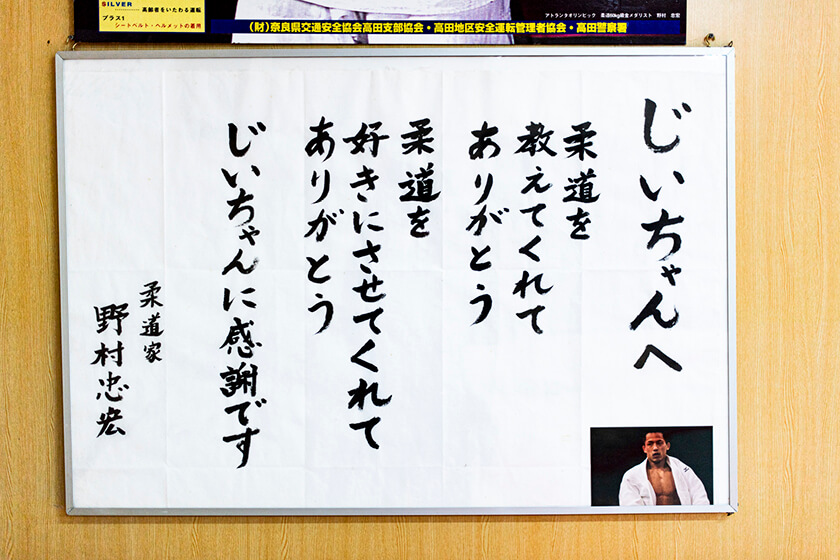 SILVER
高齢者をいたわる運転
プラス1
シートベルト・ヘルメットの着用
アトランタオリンピック 柔道60kg級金メダリスト 野村 忠宏
(財)奈良県交通安全協会高田支部協会・高田地区安全運転管理者協会・高田警察署
じいちゃんへ
柔道を
教えてくれて
ありがとう
柔道を
好きにさせてくれて
ありがとう
じいちゃんに感謝です
柔道家
野村忠宏